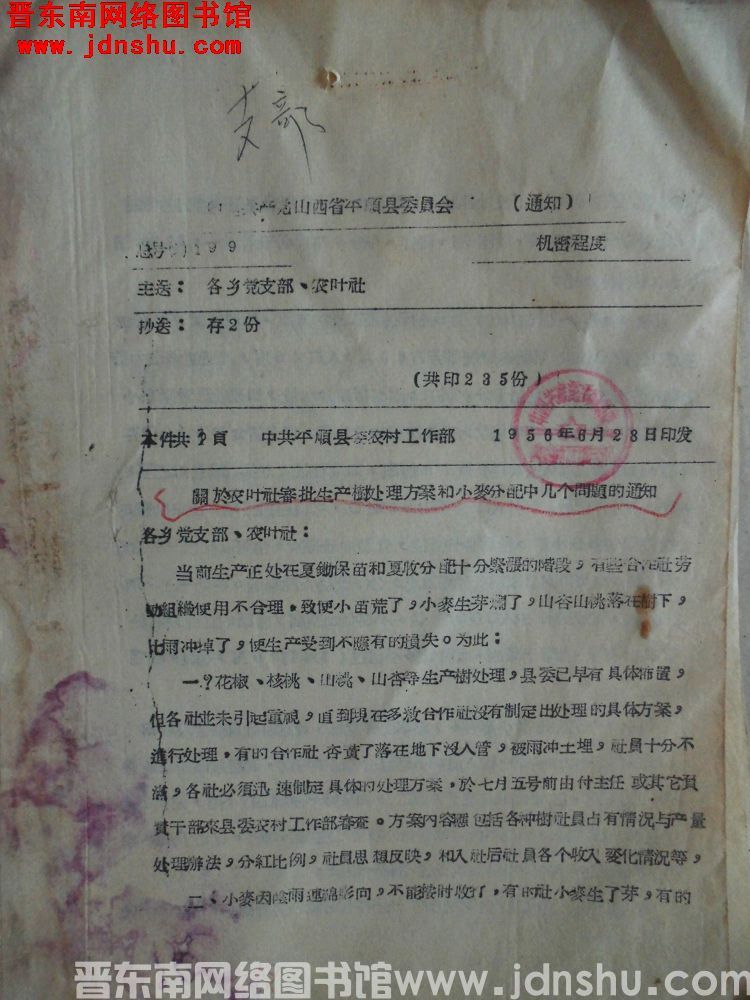 晋东南网络图书馆
www.jdnshu.com
支部
共产党山西省平順县委員会 (通知)
总号 199 机密程度
主送：各乡党支部、农叶社
抄送：存2份
(共印235份)
本件共3頁 中共平順县委农村工作部 1956年6月28日印发
關於农叶社審批生产樹处理方案和小麥分配中几个問題的通知
各乡党支部、农叶社：
当前生产正处在夏鋤保苗和夏收分配十分緊張的階段，有些合作社劳
动組織使用不合理。致使小苗荒了，小麥生芽爛了，山杏山桃落在樹下，
比雨冲掉了，使生产受到不應有的損失。为此：
一、花椒、核桃、山桃、山杏等生产樹处理，县委已早有具体佈置，
但各社並未引起重視，直到現在多数合作社没有制定出处理的具体方案，
進行处理，有的合作社杏黄了落在地下沒人管，被雨冲土埋，社員十分不
满，各社必须迅速制定具体的处理方案，於七月五号前由付主任或其它負
責干部來县委农村工作部審查。方案内容應包括各种樹社員占有情况与产量
处理辦法，分紅比例，社員思想反映，和入社后社員各个收入变化情况等，
二、小麥因陰雨連綿影向，不能按时收打，有的社小麥生了芽，有的
晋东南网络图书馆www.jdnshu.com